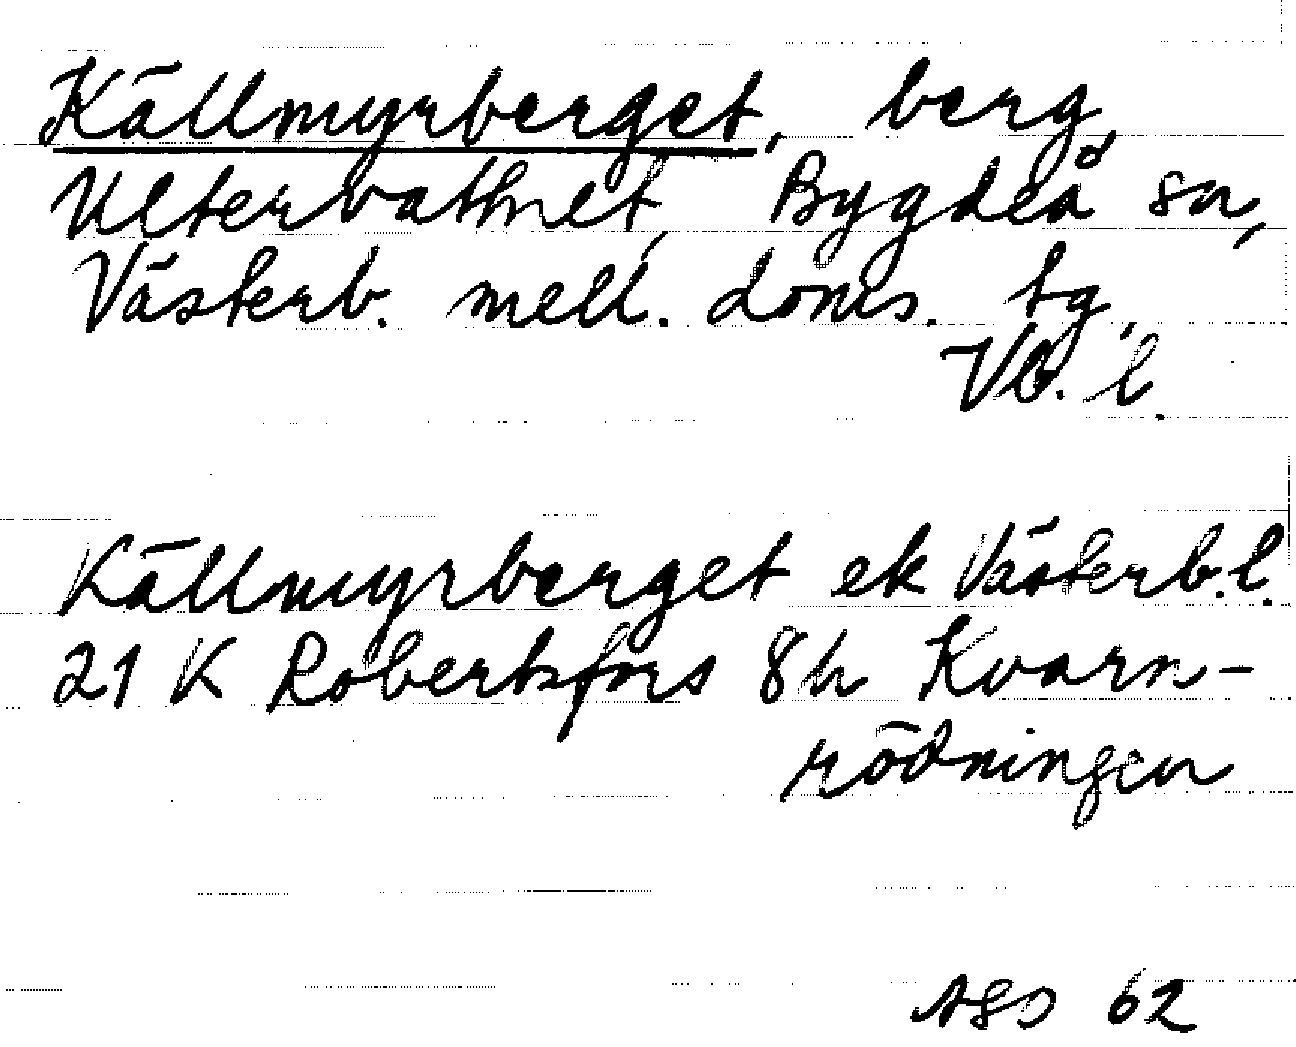 Källmyrberget, berg,
Ultervattnet, Bygdeå sn,
Västerb. mell. doms. tg,
Vb. l.
Källmyrberget ek Västerb. l.
21 K Robertsfors 8h Kvarn-
rödningen
62